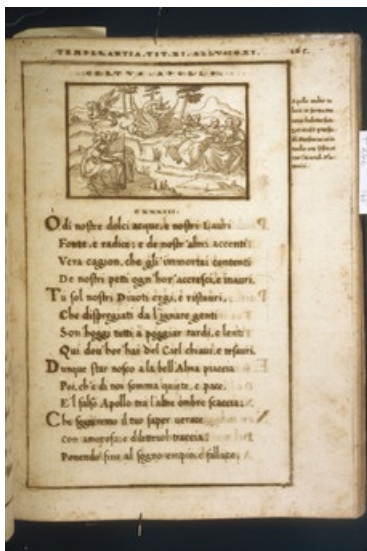 TEMPERANTIA. TIT. XI. ALLUSIO. XI. 165.
CERTUS APOLLO
CXXXIII.
O di nostre dolci acque, e nostri Lauri
Fonte, e radice; e de nostr'almi accenti
Vera cagion, che gli immortai contenti
De nostri petti ogn'hor'accresci, e inauri.
Tu sol nostri Divoti ergi, e ristauri,
Che dispregiati da l'ignare genti
Son hoggi tutti à poggiar tardi, e lenti
Qui dov'hor hai del Ciel chiavi, e tesauri.
Dunque star nosco a la bell'Alma piaccia
Poi, ch'è di noi somma quiete, e pace,
E'l falso Apollo tra l'altre ombre scaccia;
Che seguiremo il tuo saper verace
Con amorosa, e dilettevol traccia;
Ponendo fine al sogno empio, e fallace;